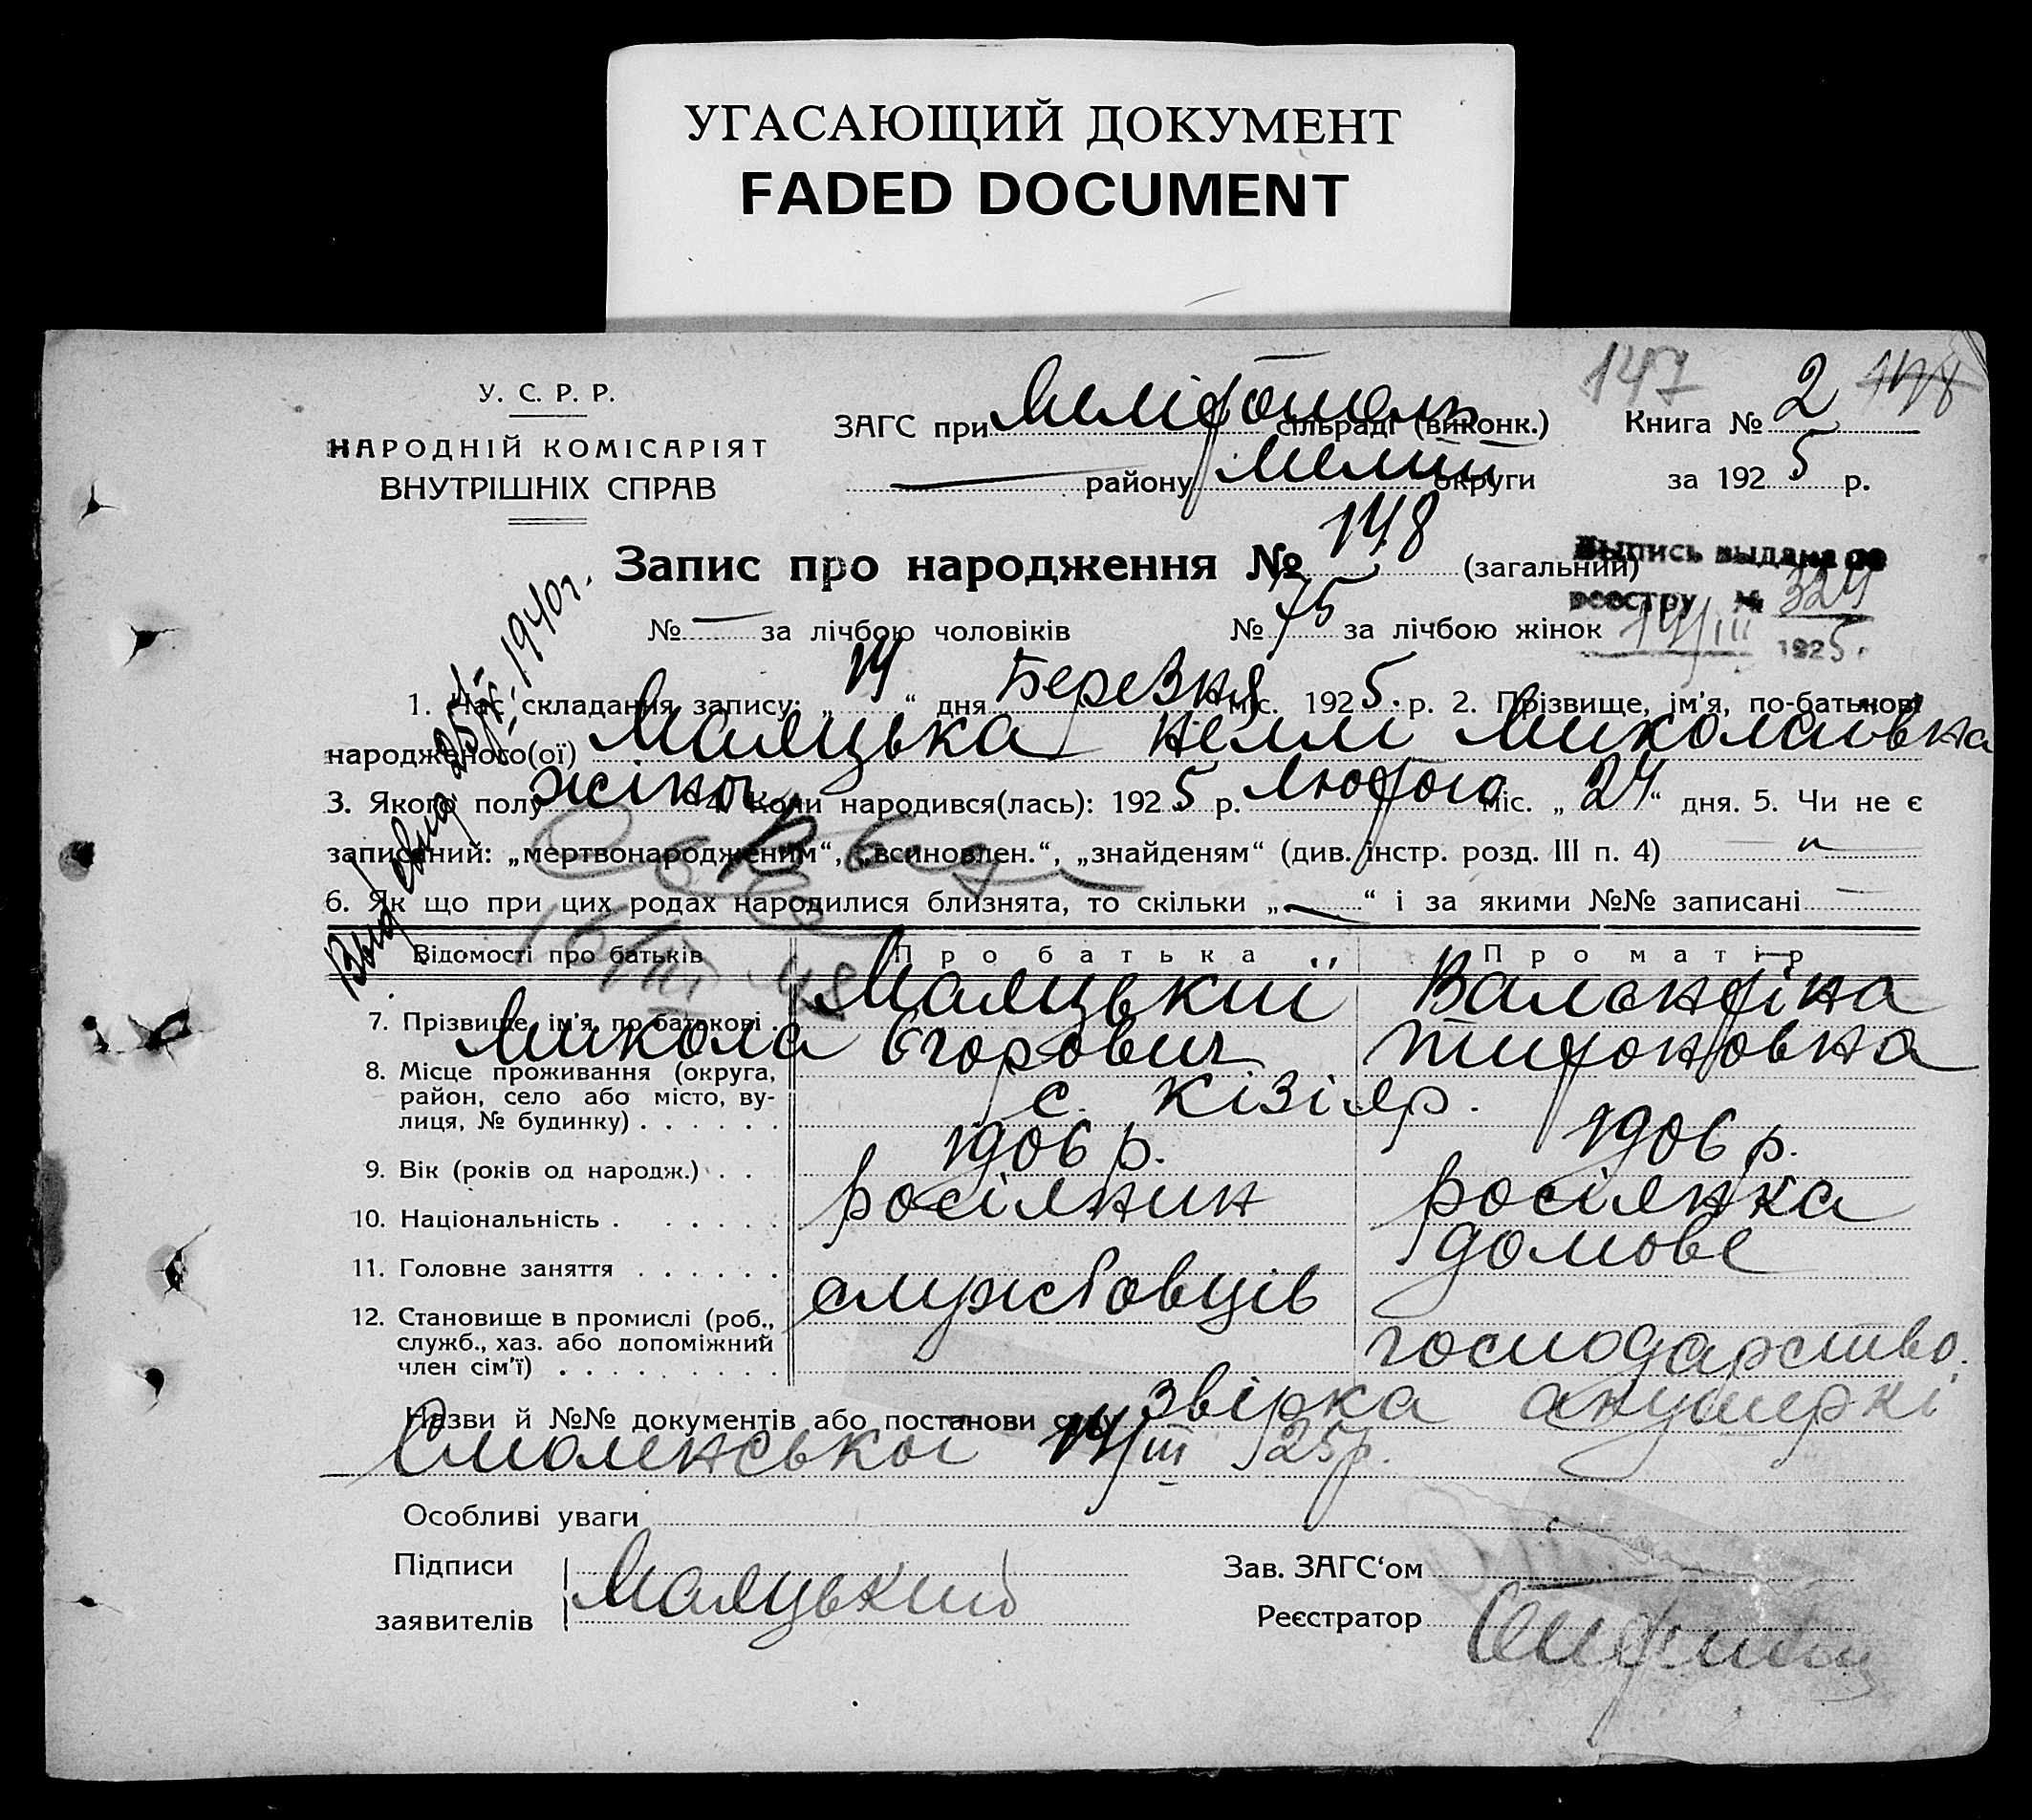 УГАСАЮЩИЙ ДОКУМЕНТ
FADED DOCUMENT
У. С. Р. Р.
НАРОДНІЙ КОМІСАРІЯТ
ВНУТРІШНІХ СПРАВ
ЗАГС при сільраді (виконк.)
району Меліт округи
147
Книга № 2 148
за 1925 р.
Запис про народження № 148 (загальний)
Выпись выдана по
реестру № 324
14/III 1925г.
№ — за лічбою чоловіків № 75 за лічбою жінок
1. Час складання запису: „ 14 “ дня Березня міс. 1925. р. 2. Прізвище, ім'я, по-батькові
народженого(ої) Маляцька Неллі Миколаївна
3. Якого полу жіноч. 4. Коли народився(лась): 1925 р. Лютого міс. „ 24 “ дня. 5. Чи не є
записаний: „мертвонародженим“, „всиновлен.“, „знайденям“ (див. інстр. розд. III п. 4) — „
6. Як що при цих родах народилися близнята, то скільки „ — “ і за якими №№ записані —
16/III 48
Відомості про батьків Про батька Про матір
7. Прізвище, ім'я, по-батькові . Маляцький Валентіна
Микола Єгорович Тихоновна
8. Місце проживання (округа,
район, село або місто, ву-
лиця, № будинку) . . . . . . с. Кізіяр.
9. Вік (років од народж.) . . 1906 р. 1906 р.
10. Національність . . . . . . росіянин росіянка
11. Головне заняття . . . . . . службовців домове
12. Становище в промислі (роб.,
служб., хаз. або допоміжний
член сім'ї) . . . . . . . . . господарство.
Назви й №№ документів або постанови суду звірка акушеркі
Смоленської 14/III 25р.
Особливі уваги
Підписи
заявителів Маляцький
Зав. ЗАГС‘ом
Реєстратор